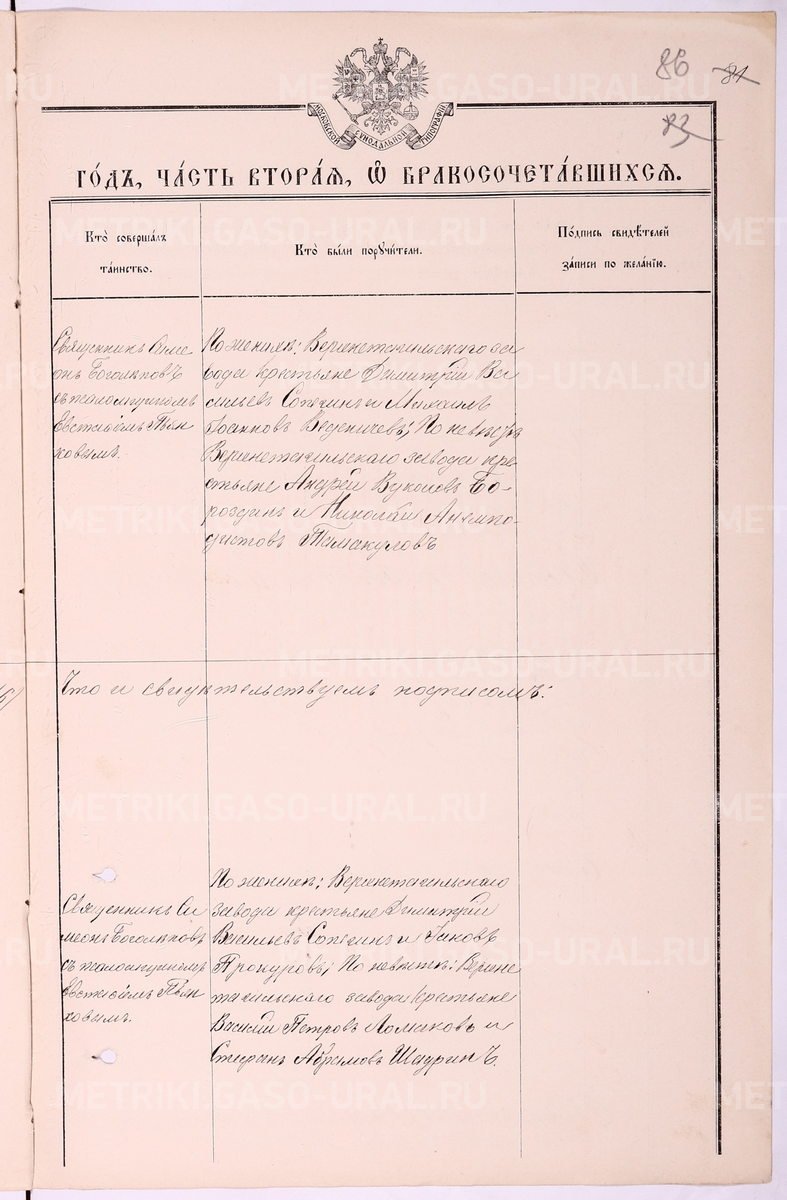 86 84
83
МОСКОВСКОЙ СУНОДАЛЬНОЙ ТИПОГРАФІИ
ГО́ДЪ, ЧА́СТЬ ВТОРА́Ѧ, Ѽ БРАКОСОЧЕТА́ВШИХСѦ.
Кто̀ совершалъ
та́инство.
Кто̀ бы́ли порꙋчи́тели.
По́дпись свидѣ́телей
за́писи по жела́нїю.
Священникъ Симе
онъ Боголѣповъ
съ псаломщикомъ
Евстаѳіемъ Пьян
ковымъ.
По женихѣ: Верхнетагильскаго за
вода крестьяне Димитрій Ва
сильевъ Сапегинъ и Михаилъ
Іоанновъ Веденичевъ; По невѣстѣ
Верхнетагильскаго завода кре-
стьяне Андрей Вуколовъ Бо-
роздинъ и Николай Анемпо-
дистовъ Тамакуловъ
Что и свидѣтельствуемъ подписомъ:
Священникъ Си
меонъ Боголѣповъ
съ псаломщикомъ
Евстаѳіемъ Пьян
ковымъ.
По женихѣ: Верхнетагильскаго
завода крестьяне Димитрій
Васильевъ Сапегинъ и Іаковъ
Прокуровъ; По невѣстѣ: Верхне
тагильскаго завода крестьяне
Василій Петровъ Ломаковъ и
Стефанъ Абрамовъ Шадринъ.
METRIKI.GASO-URAL.RU